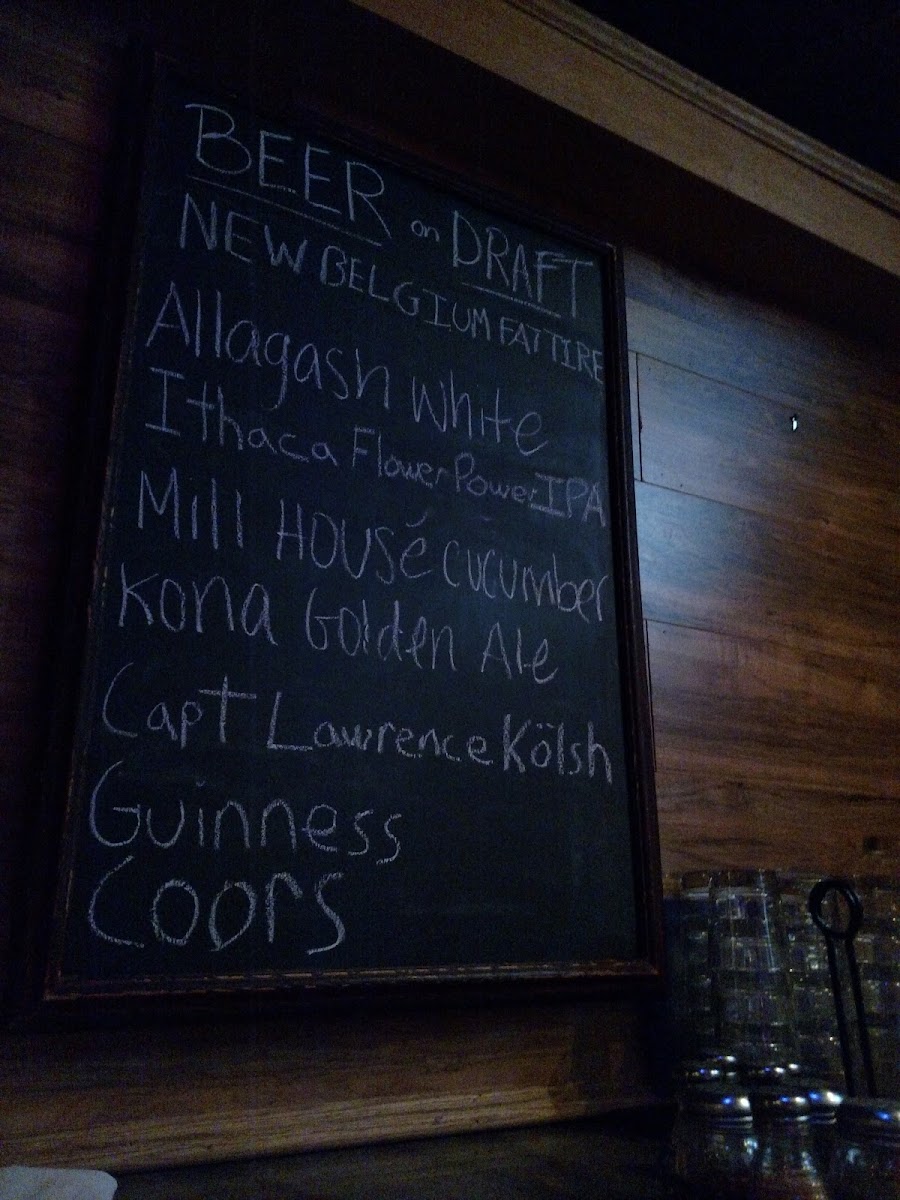 BEER on DRAFT
NEW BELGIUM FAT TIRE
Allagash White
Ithaca Flower Power IPA
Mill HOUSé cucumber
Kona Golden Ale
Capt Lawrence Kölsh
Guinness
Coors